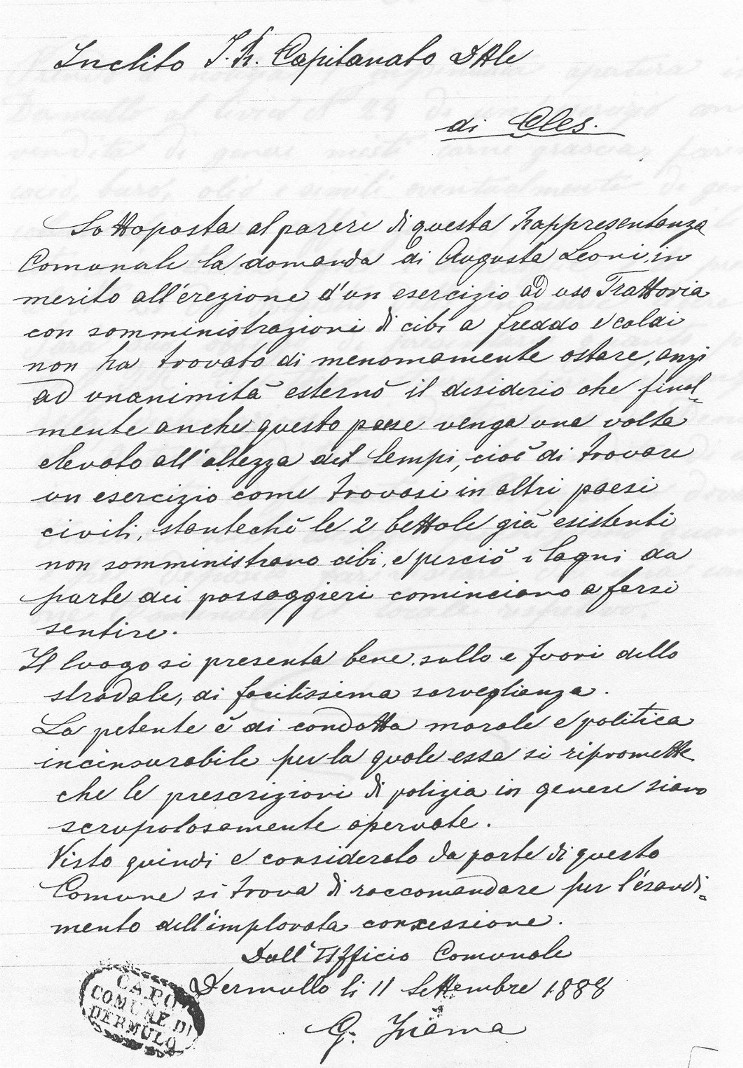 Inclito I. R. Capitanato Dtle
di Cles.
Sottoposta al parere di questa Rappresentanza
Comunale la domanda di Augusta Leoni, in
merito all'erezione d'un esercizio ad uso Trattoria
con somministrazioni di cibi a freddo e caldi
non ha trovato di menomamente ostare, anzi
ad unanimità esternò il disiderio che final-
mente anche questo paese venga una volta
elevato all'altezza dei tempi, cioè di trovare
un esercizio come trovasi in altri paesi
civili, stantechè le 2 bettole già esistenti
non somministrano cibi, e perciò i lagni da
parte dei passaggieri cominciano a farsi
sentire.
Il luogo si presenta bene, sullo e fuori dello
stradale, di facilissima sorveglianza.
La petente è di condotta morale e politica
incinsurabile per la quale essa si ripromette
che le prescrizioni di polizia in genere siano
scrupolosamente osservate.
Visto quindi e considerato da parte di questo
Comune si trova di raccomandare per l'esaudi-
mento dell'implorata concessione.
Dall'Ufficio Comunale
Dermullo li 11 Settembre 1888
G. Inama
CAPO
COMUNE DI
DERMULO